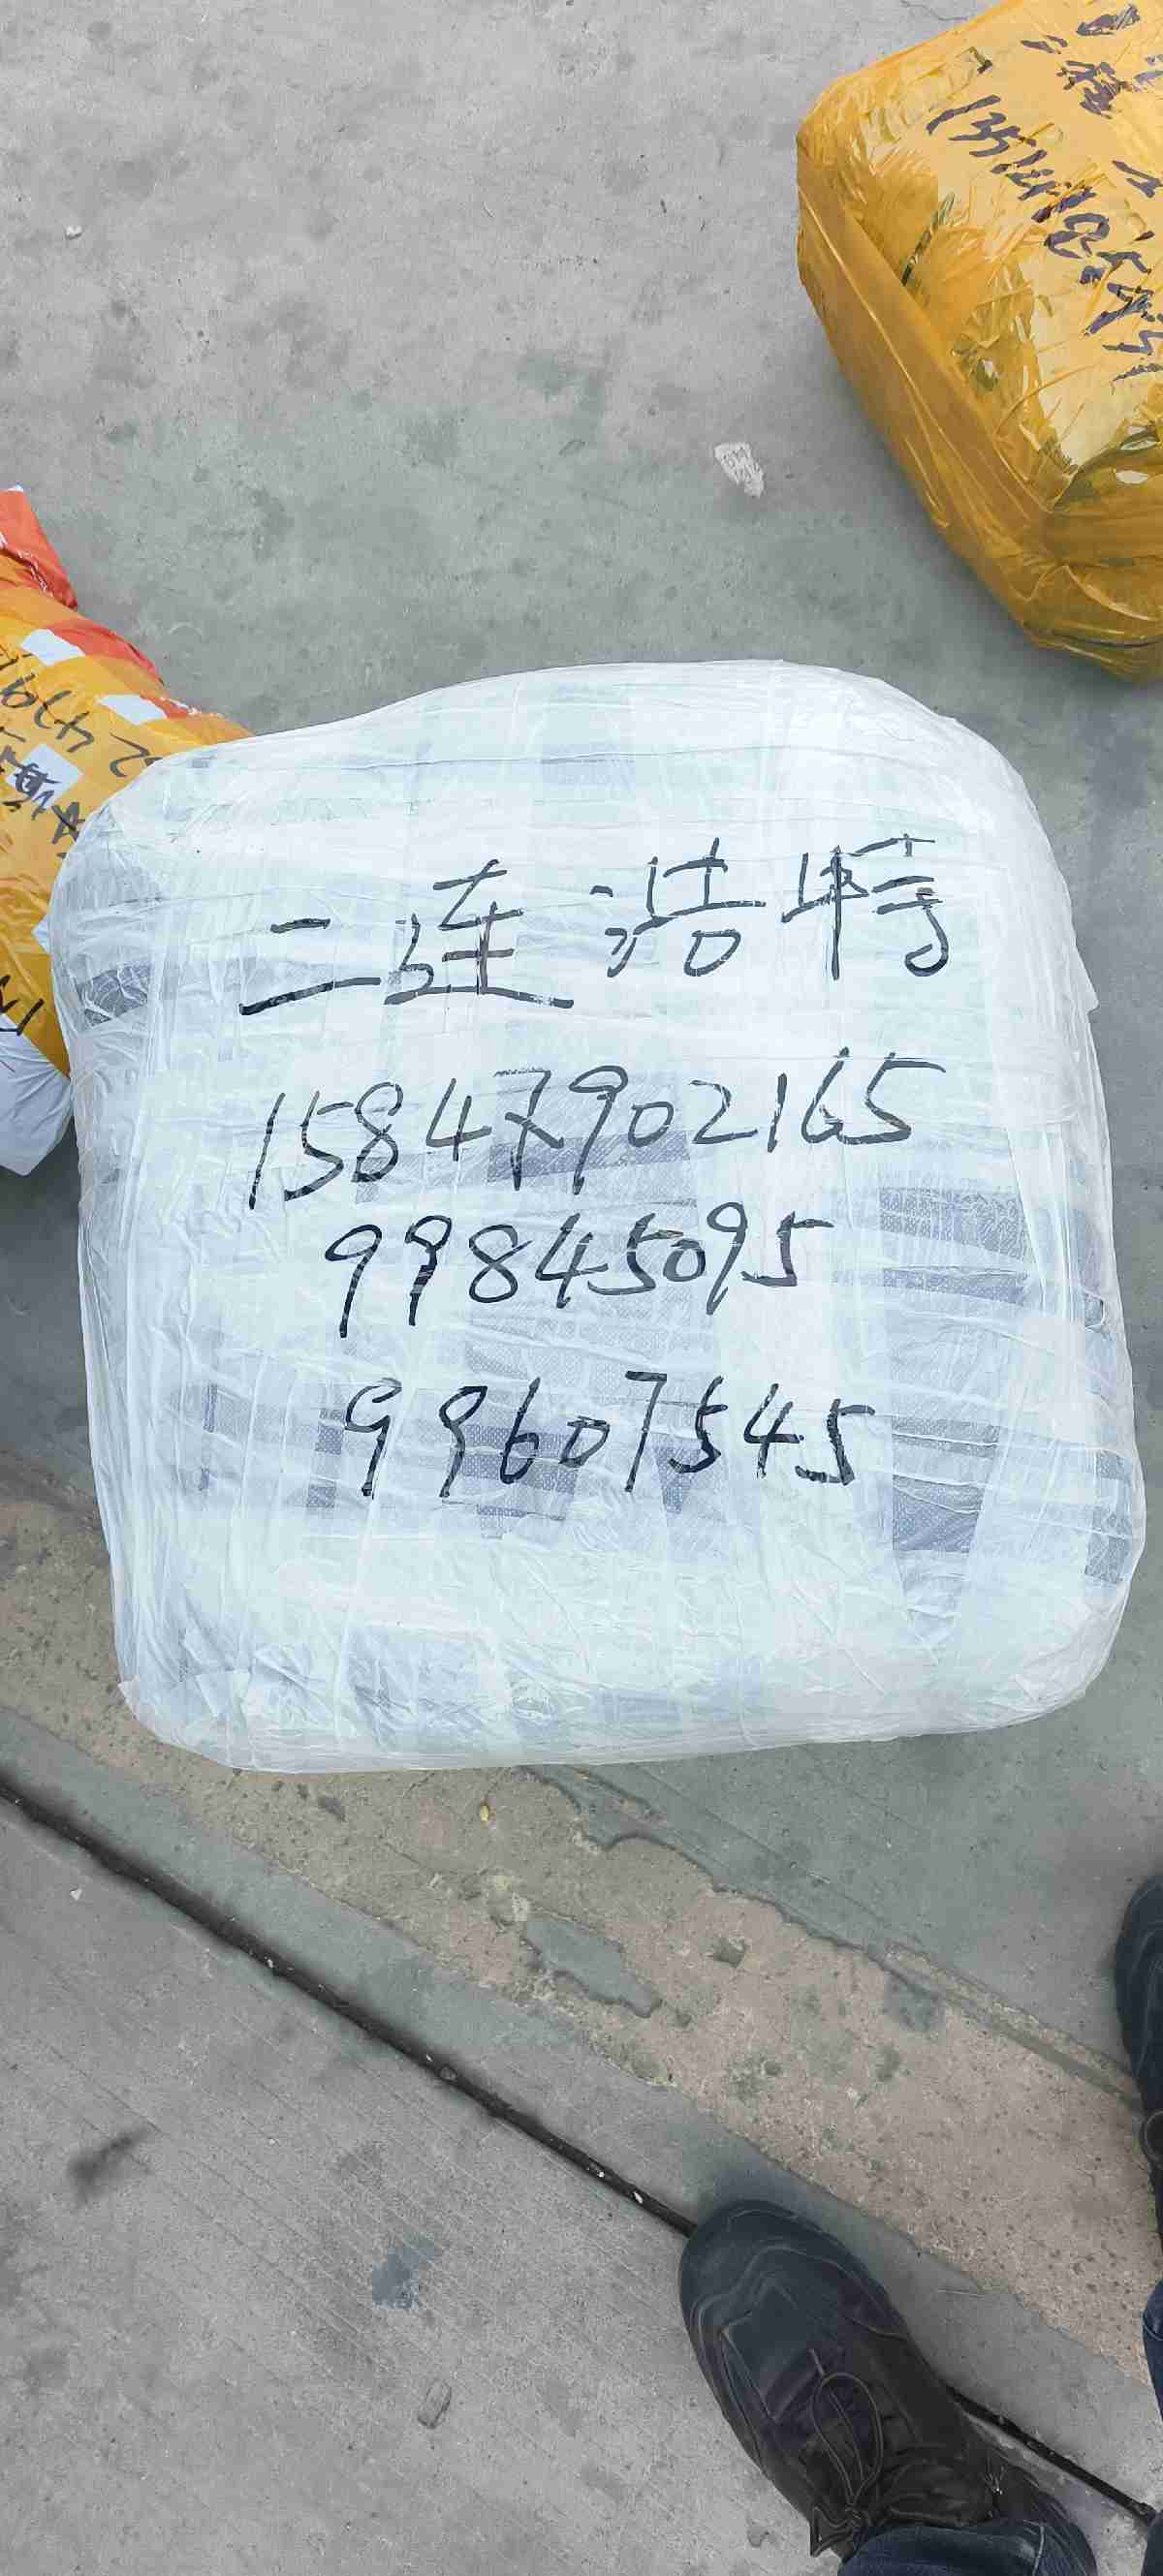 二连浩特
15847902165
99845095
99607545